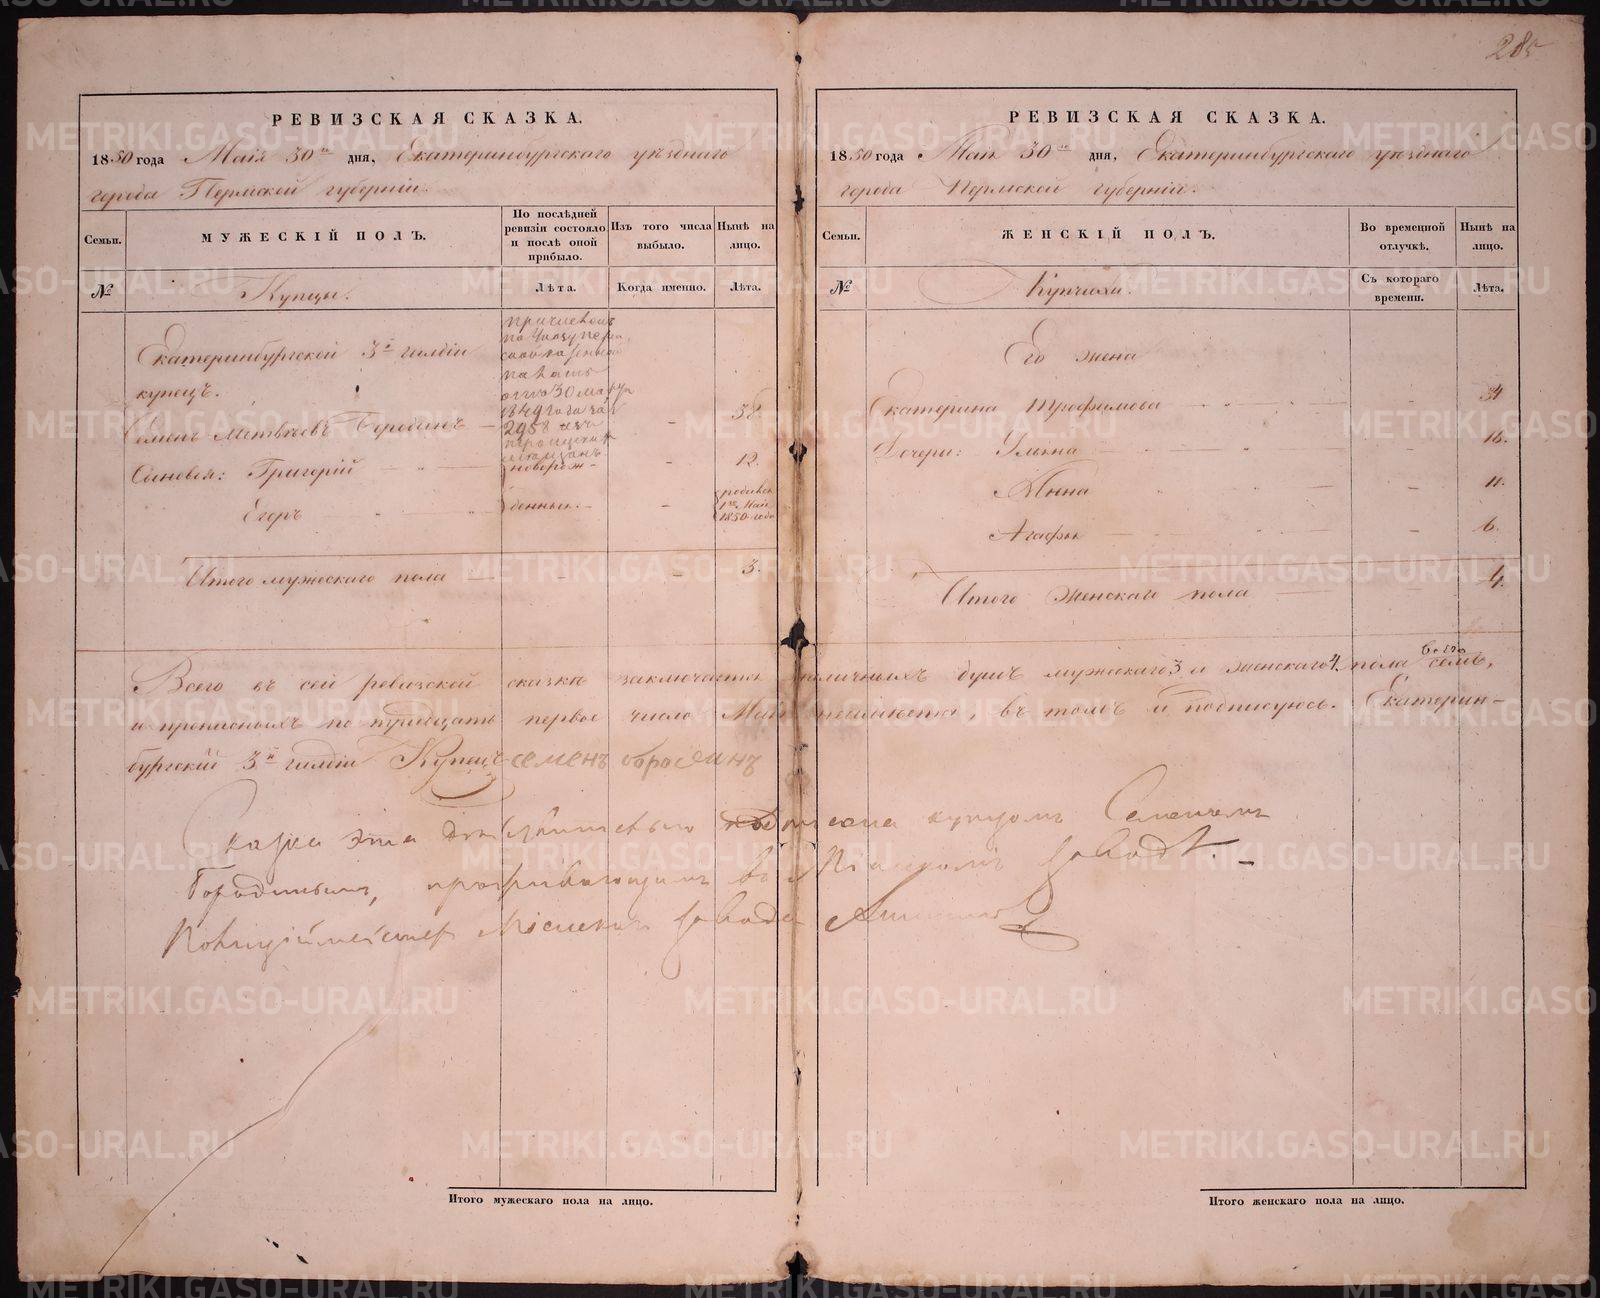 285
РЕВИЗСКАЯ СКАЗКА.
1850 года Маія 30го дня, Екатеринбургскаго уѣзднаго
города Пермской губерніи.
Семьи.
МУЖЕСКІЙ ПОЛЪ.
По послѣдней
ревизіи состояло
и послѣ оной
прибыло.
Изъ того числа
выбыло.
Нынѣ на
лицо.
№
Купецы.
Лѣта.
Когда именно.
Лѣта.
Екатеринбургской 3й гилдіи
купецъ.
Семенъ Матвѣевъ Бородинъ
38
Сыновья: Григорій
12.
Егоръ
новорож-
денный.
родивсь
1го Маія
1850 года
отъ 30 марта
1849 года за №
2958
Итого мужескаго пола
3.
РЕВИЗСКАЯ СКАЗКА.
1850 года Маія 30го дня, Екатеринбургскаго уѣзднаго
города Пермской губерніи.
Семьи.
ЖЕНСКІЙ ПОЛЪ.
Во временной
отлучкѣ.
Нынѣ на
лицо.
№
Купчихи.
Съ котораго
времени.
Лѣта.
Его жена
Екатерина Трофимова
34
Дочери: Ульяна
16.
Анна
11.
Агафья
6.
Итого Женскаго пола
4.
Всего въ сей ревизской сказкѣ заключается наличныхъ душъ мужескаго 3 и женскаго 4 пола всего семь,
и прописныхъ по тридцать первое число Маія неимѣется, въ томъ и подписуюсь. Екатерин-
бургскій 3й гилдіи Купецъ семенъ бородинъ
Сказка эта действительно подписана купцомъ Семеномъ
Бородинымъ, проживающимъ въ Міаскомъ заводѣ.
Полицiймейстеръ Міаскаго завода
Итого мужескаго пола на лицо.
Итого женскаго пола на лицо.
METRIKI.GASO-URAL.RU